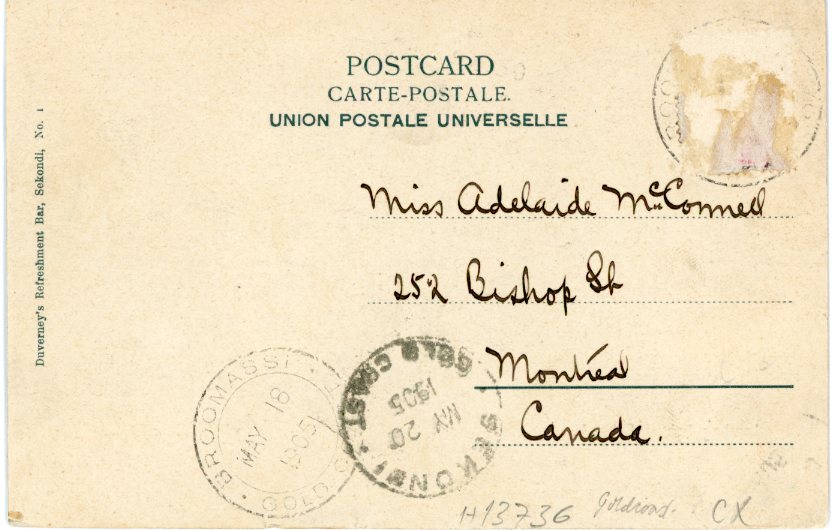 POSTCARD
CARTE-POSTALE.
UNION POSTALE UNIVERSELLE
Duverney's Refreshment Bar, Sekondi, No. 1
Miss Adelaide McConnell
252 Bishop St
Montréal
Canada.
BROOMASSI
MAY 18
1905
GOLD
SEKONDI
MY 20
1905
GOLD COAST
H13736
CX